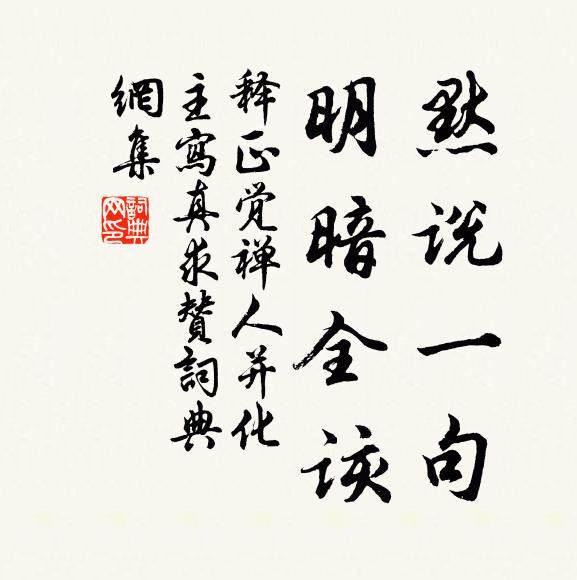 默说一句
明暗全该
释正觉禅人并化
主寫真求贊詞典
網集
詞典
网印